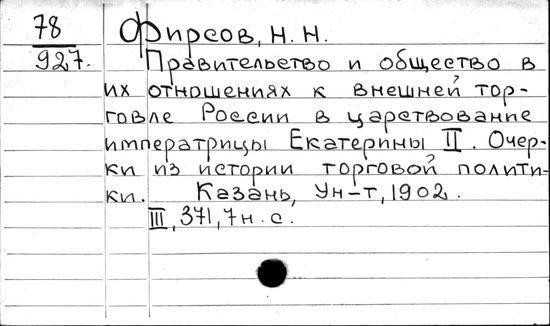 78 Фирсов, Н. Н.
927. Правительство и общество в
их отношениях к внешней тор-
говле России в царствование
императрицы Екатерины II. Очер-
ки из истории торговой полити-
ки. Казань, Ун-т, 1902.
III, 371, 7 н. с.